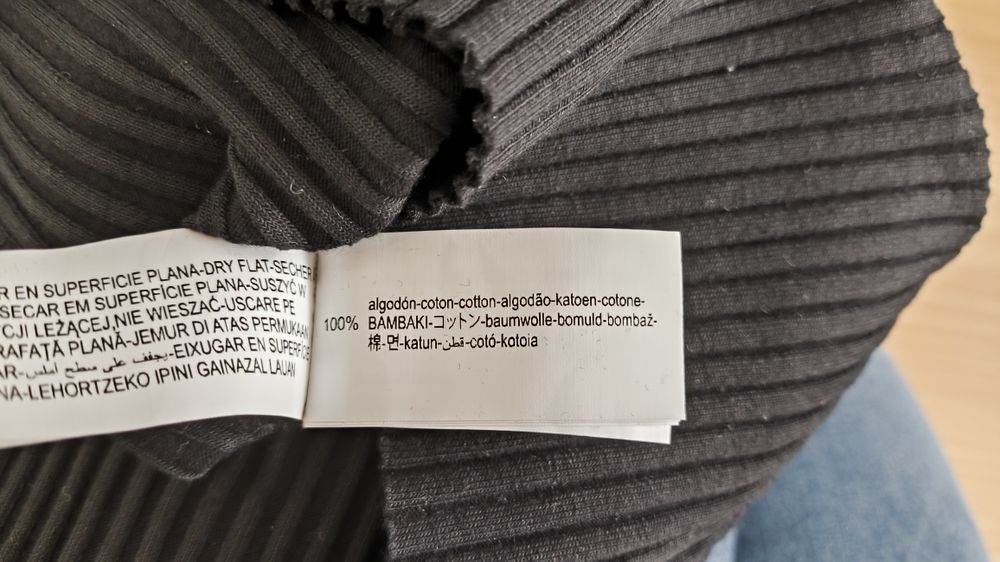 R EN SUPERFICIE PLANA-DRY FLAT-SECHER
SECAR EM SUPERFÍCIE PLANA-SUSZYĆ W
CJI LEŻĄCEJ,NIE WIESZAĆ-USCARE PE
RAFAȚĂ PLANĂ-JEMUR DI ATAS PERMUKAAN
AR-يجفف على سطح أملس-EIXUGAR EN SUPERFÍCIE
NA-LEHORTZEKO IPINI GAINAZAL LAUAN
100%
algodón-coton-cotton-algodão-katoen-cotone-
BAMBAKI-コットン-baumwolle-bomuld-bombaž-
棉-면-katun-قطن-cotó-kotoia